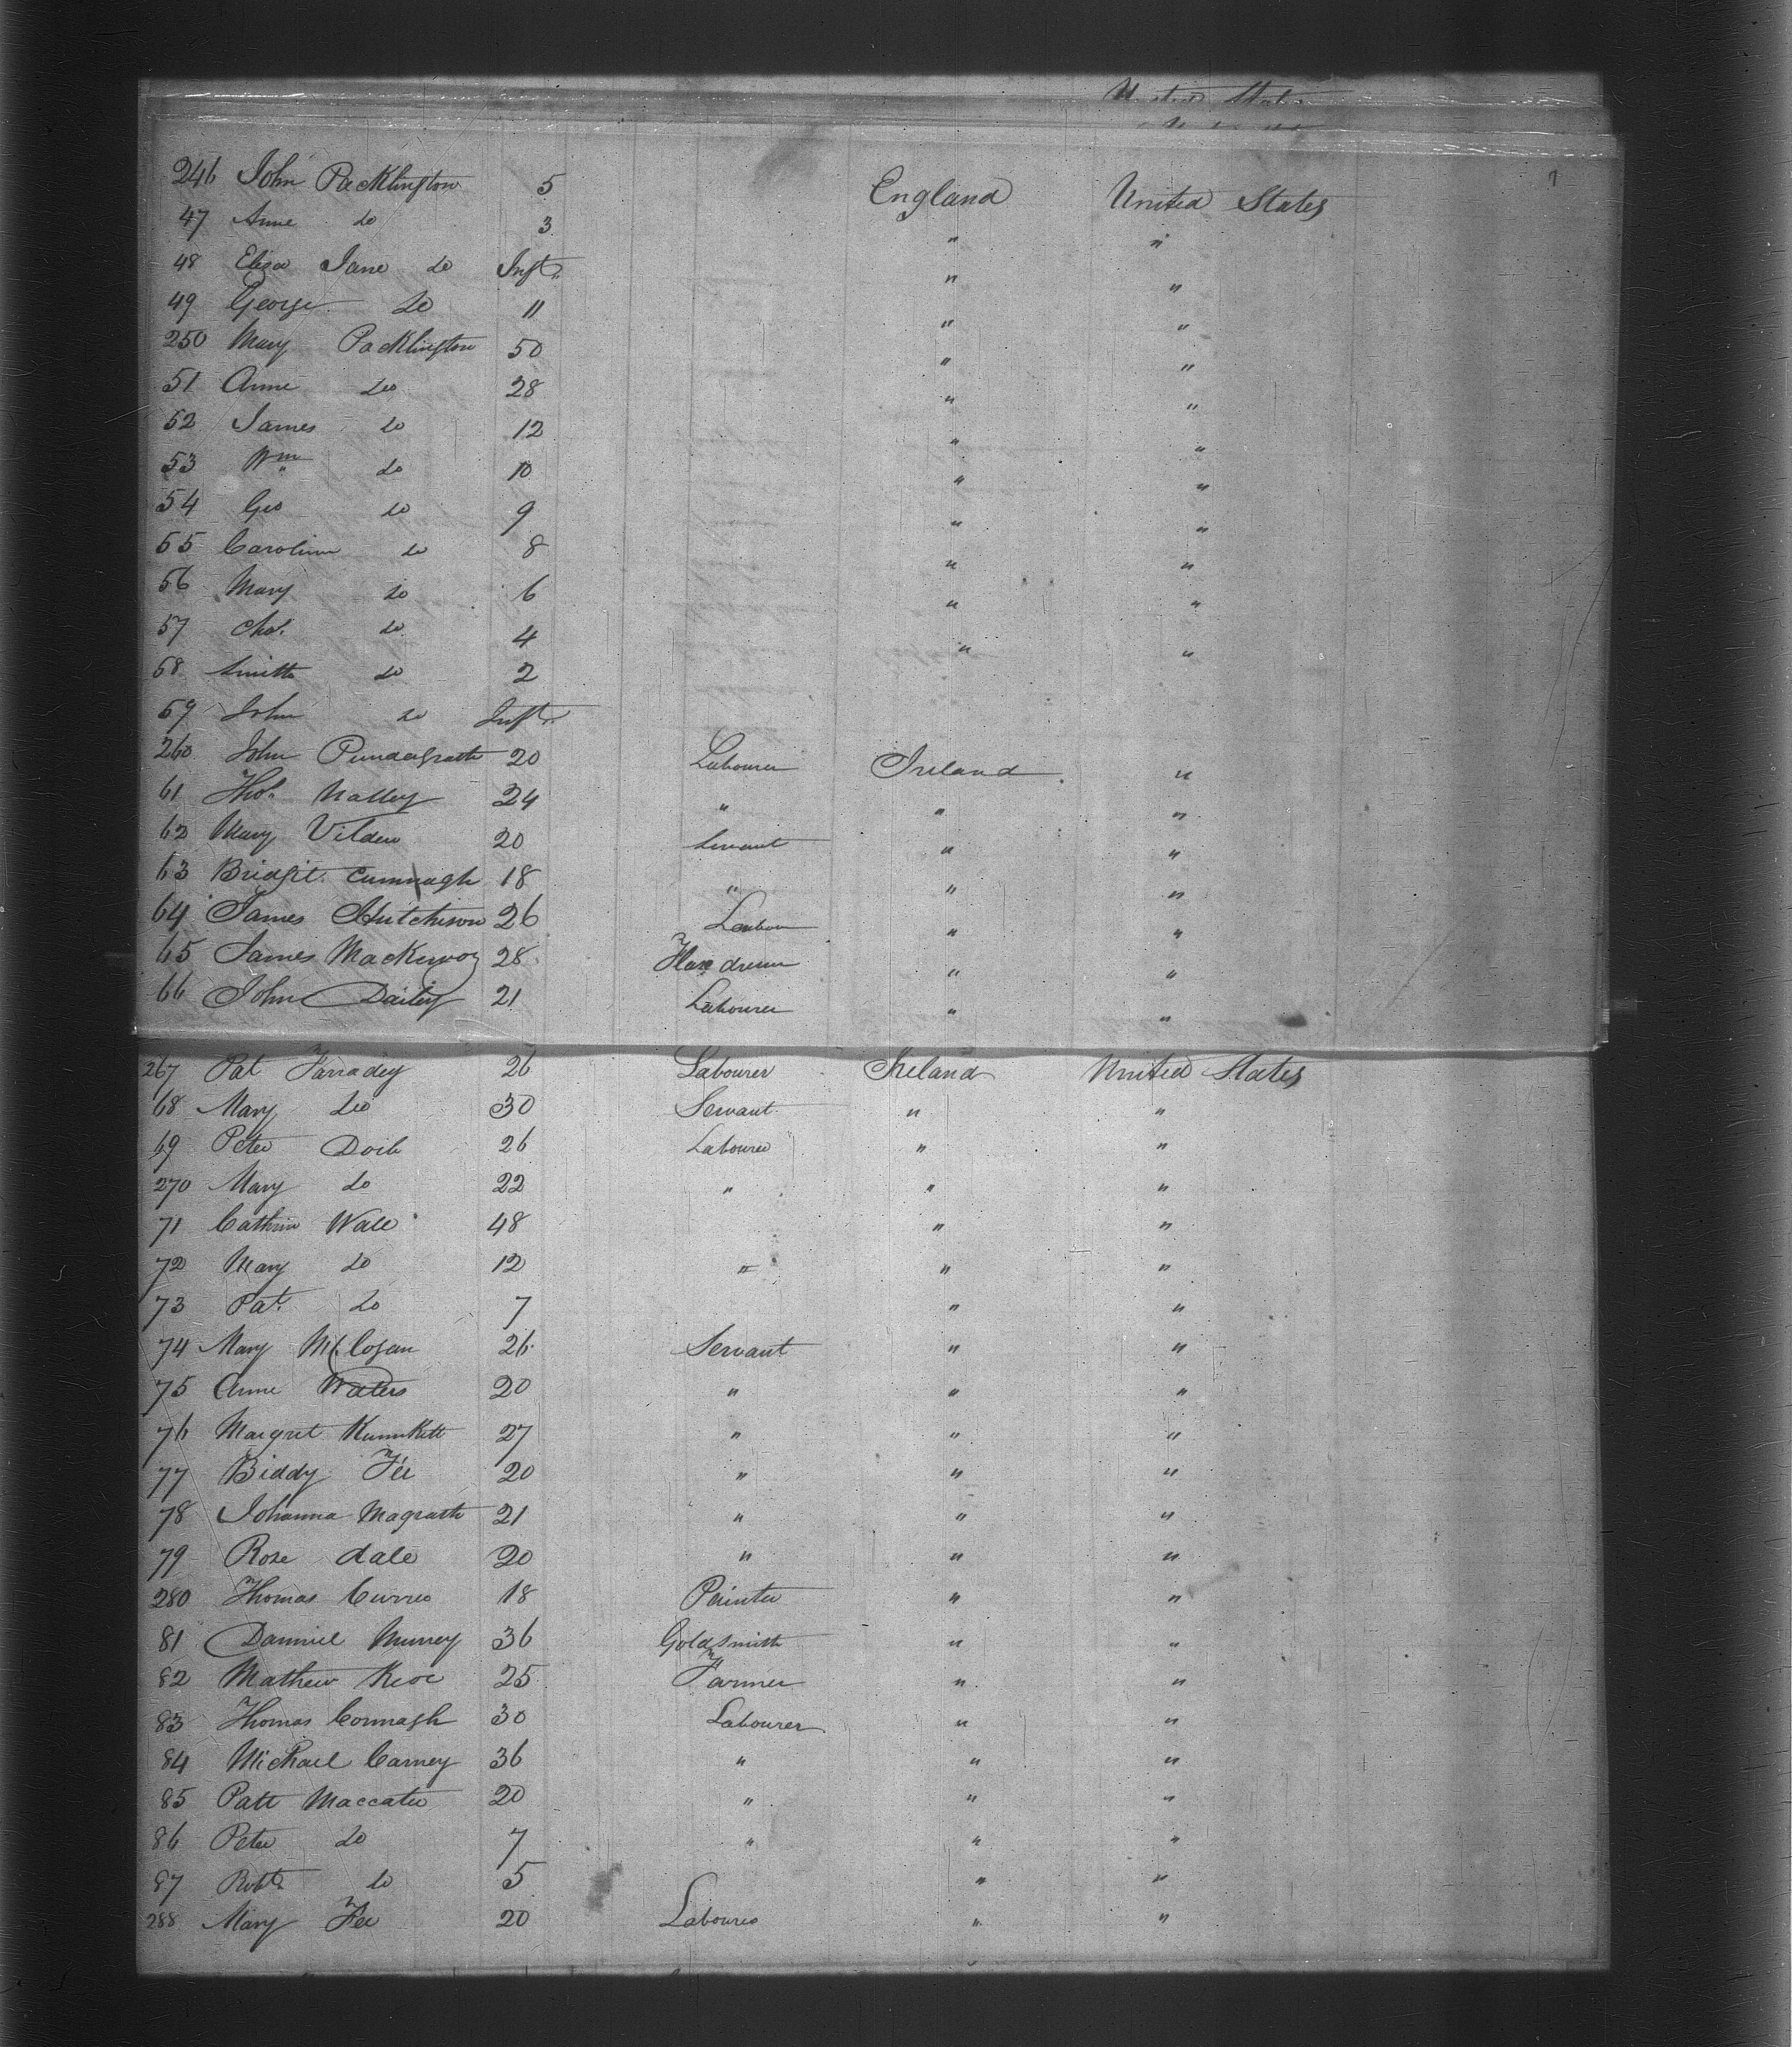 United States
246 John Packlington 5 England United States
47 Anne do 3 " "
48 Eliza Jane do Inft. " "
49 George do 11 " "
250 Mary Packlington 50 " "
51 Anne do 28 " "
52 James do 12 " "
53 Wm do 10 " "
54 Geo do 9 " "
55 Caroline do 8 " "
56 Mary do 6 " "
57 Chas. do 4 " "
58 Smith do 2
59 John do Inft.
260 John Pendergrath 20 Labourer Ireland "
61 Thos. Nalley 24 " " "
62 Mary Vilden 20 Servant " "
63 Bridgit Cumnagh 18 " " "
64 James Hutchison 26 Labour " "
65 James Mackewoy 28 Flax dresser " "
66 John Dailey 21 Labourer " "
267 Pat Farradey 26 Labourer Ireland United States
68 Mary do 30 Servant " "
69 Peter Doile 26 Labourer " "
270 Mary do 22 " " "
71 Cathrin Wale 48 " "
72 Mary do 12 " " "
73 Pat. do 7 " "
74 Mary McLogan 26 Servant " "
75 Anne Waters 20 " " "
76 Margret 27 " " "
77 Biddy Fee 20 " " "
78 Johanna Magrath 21 " " "
79 Rose dale 20 " " "
280 Thomas Curres 18 Painter " "
81 Danniel Murrey 36 Goldsmith " "
82 Mathew Keoe 25 Farmer " "
83 Thomas Cormagh 30 Labourer " "
84 Michael Carney 36 " " "
85 Patt Maccater 20 " " "
86 Peter do 7 " " "
87 Robt. do 5 " "
288 Mary Fee 20 Labourer " "